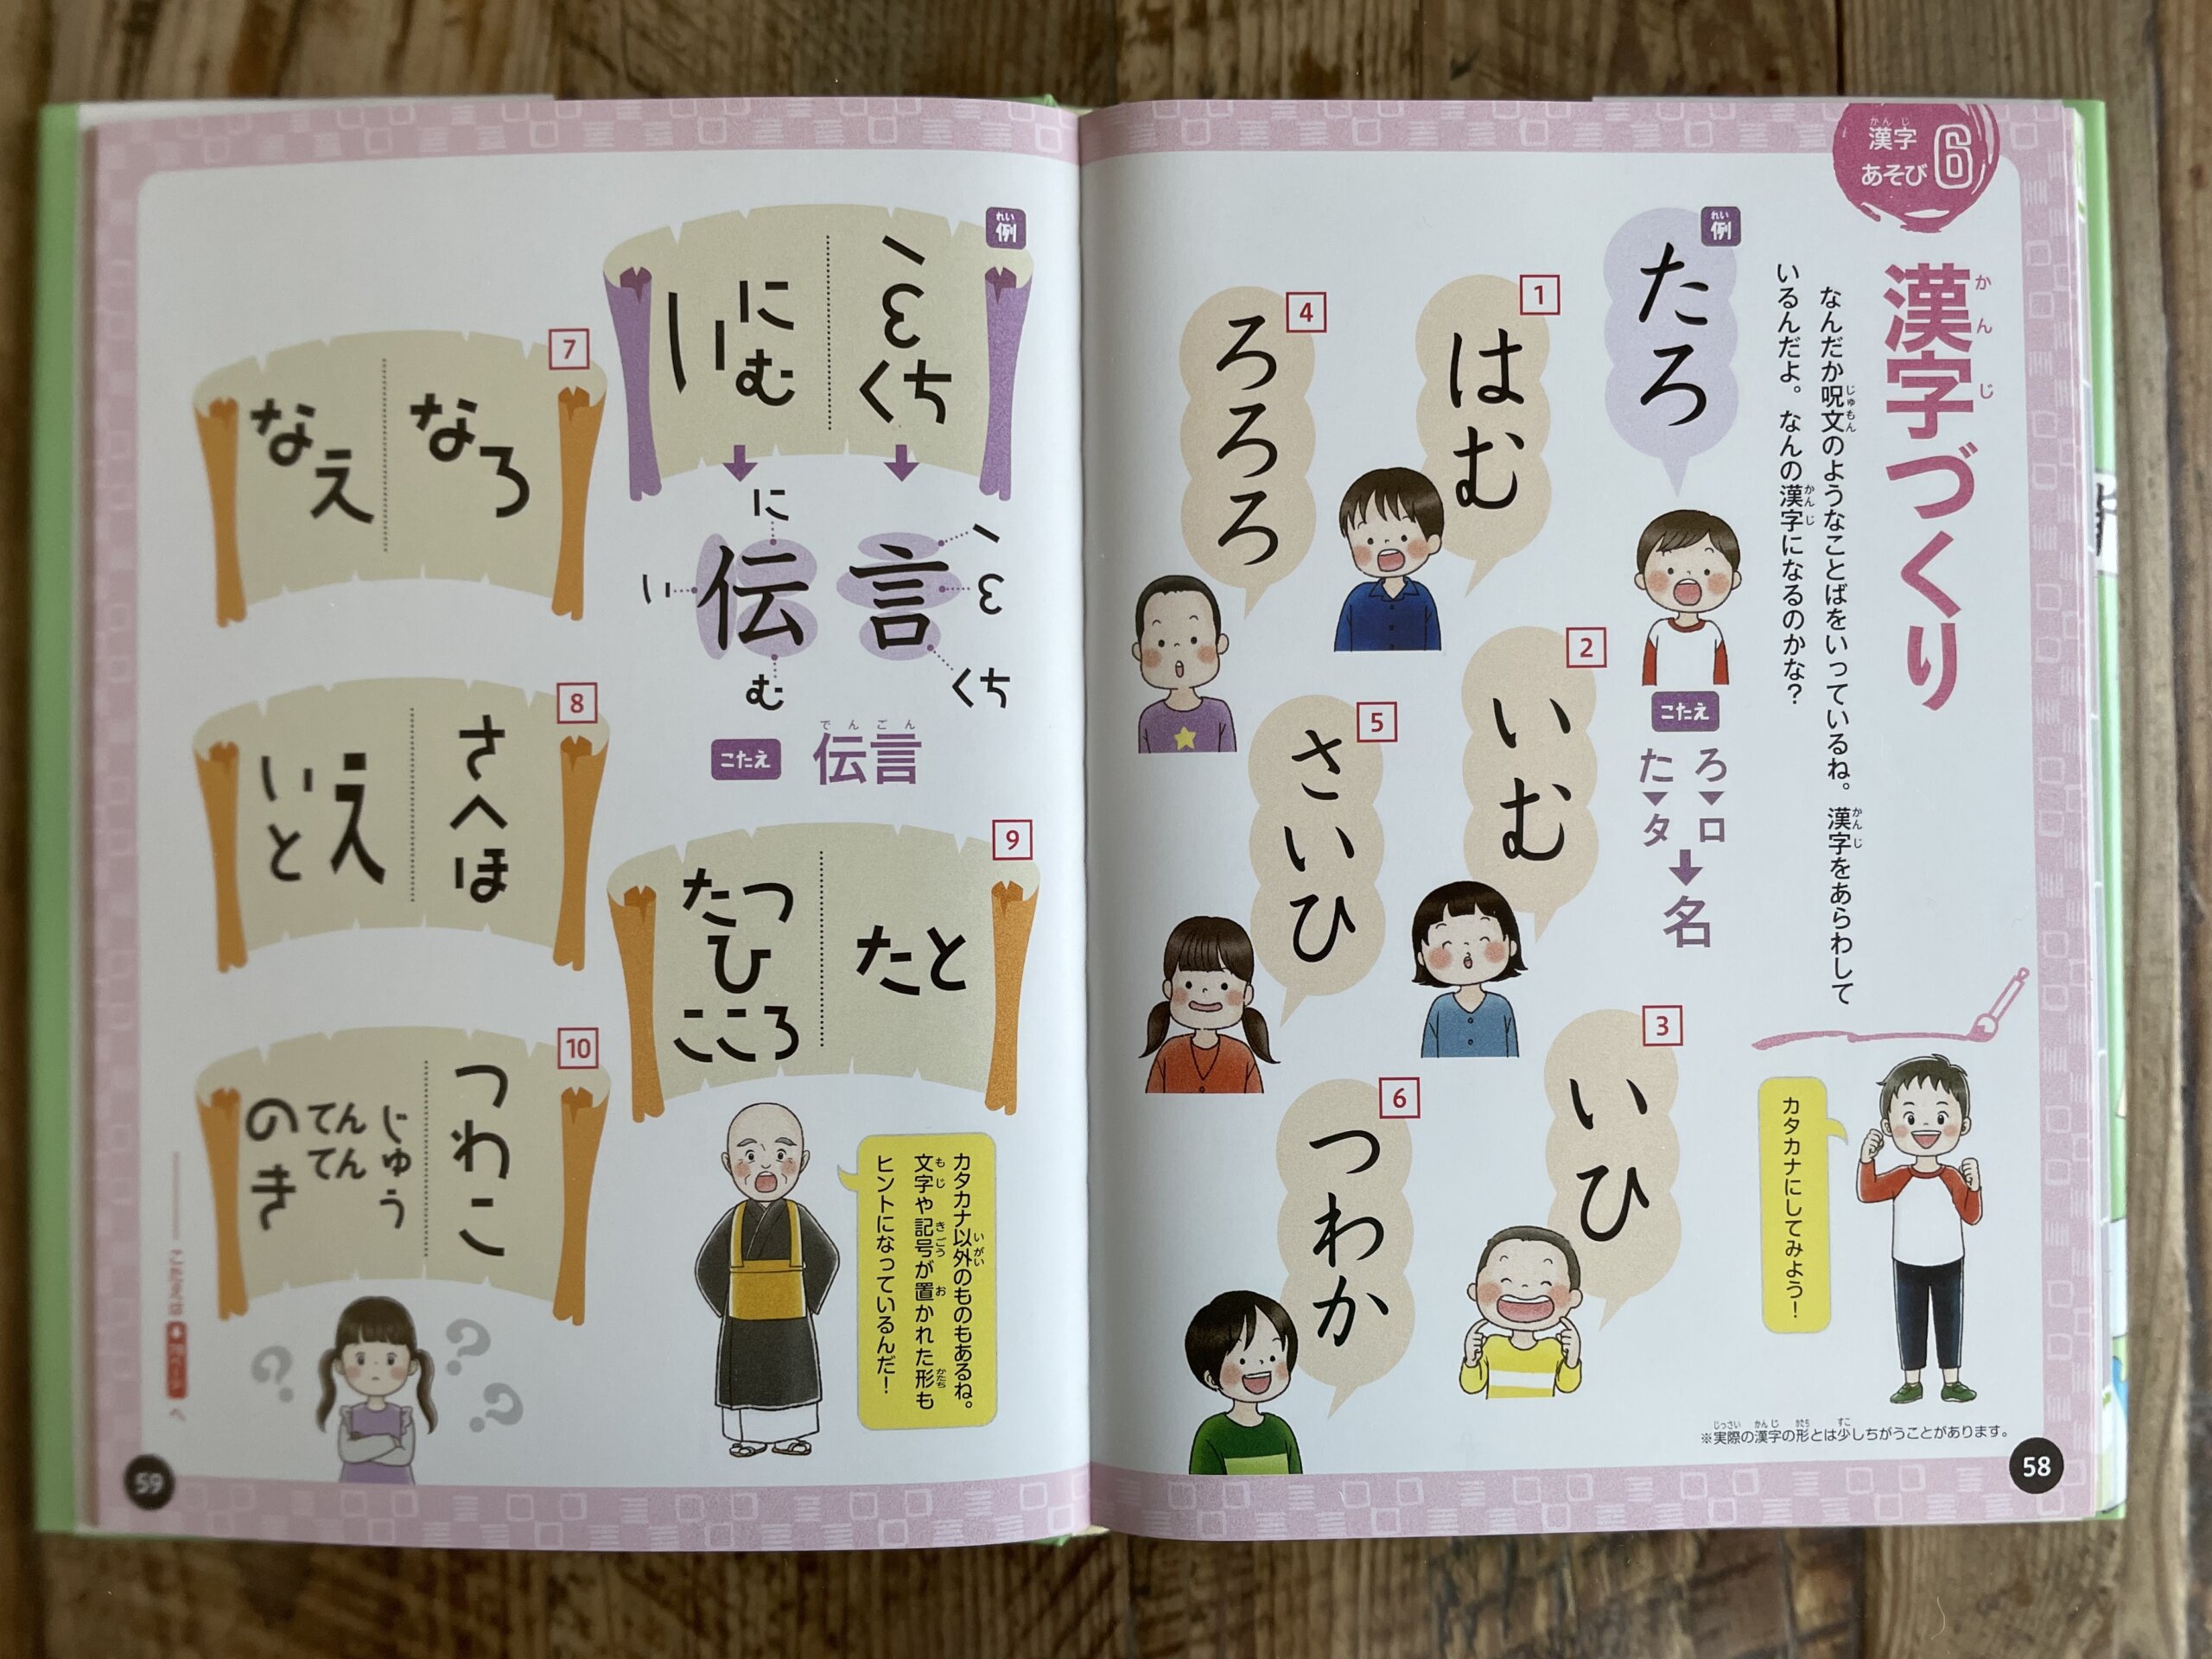 漢字
あそび
6
漢字づくり
なんだか呪文のようなことばをいっているね。漢字をあらわして
いるんだよ。なんの漢字になるのかな？
カタカナにしてみよう！
例
たろ
こたえ
ろ▼ロ
た▼タ
名
1
はむ
2
いむ
3
いひ
4
ろろろ
5
さいひ
6
つわか
※実際の漢字の形とは少しちがうことがあります。
58
例
くち
に
む
い
言
伝
に
い
む
くち
こたえ
伝言
7
なろ
なえ
8
さへほ
え
いと
9
たと
たつ
ひ
こころ
10
つわこ
じゅう
てんてん
のき
カタカナ以外のものもあるね。
文字や記号が置かれた形も
ヒントになっているんだ！
こたえは
ページ
へ
59